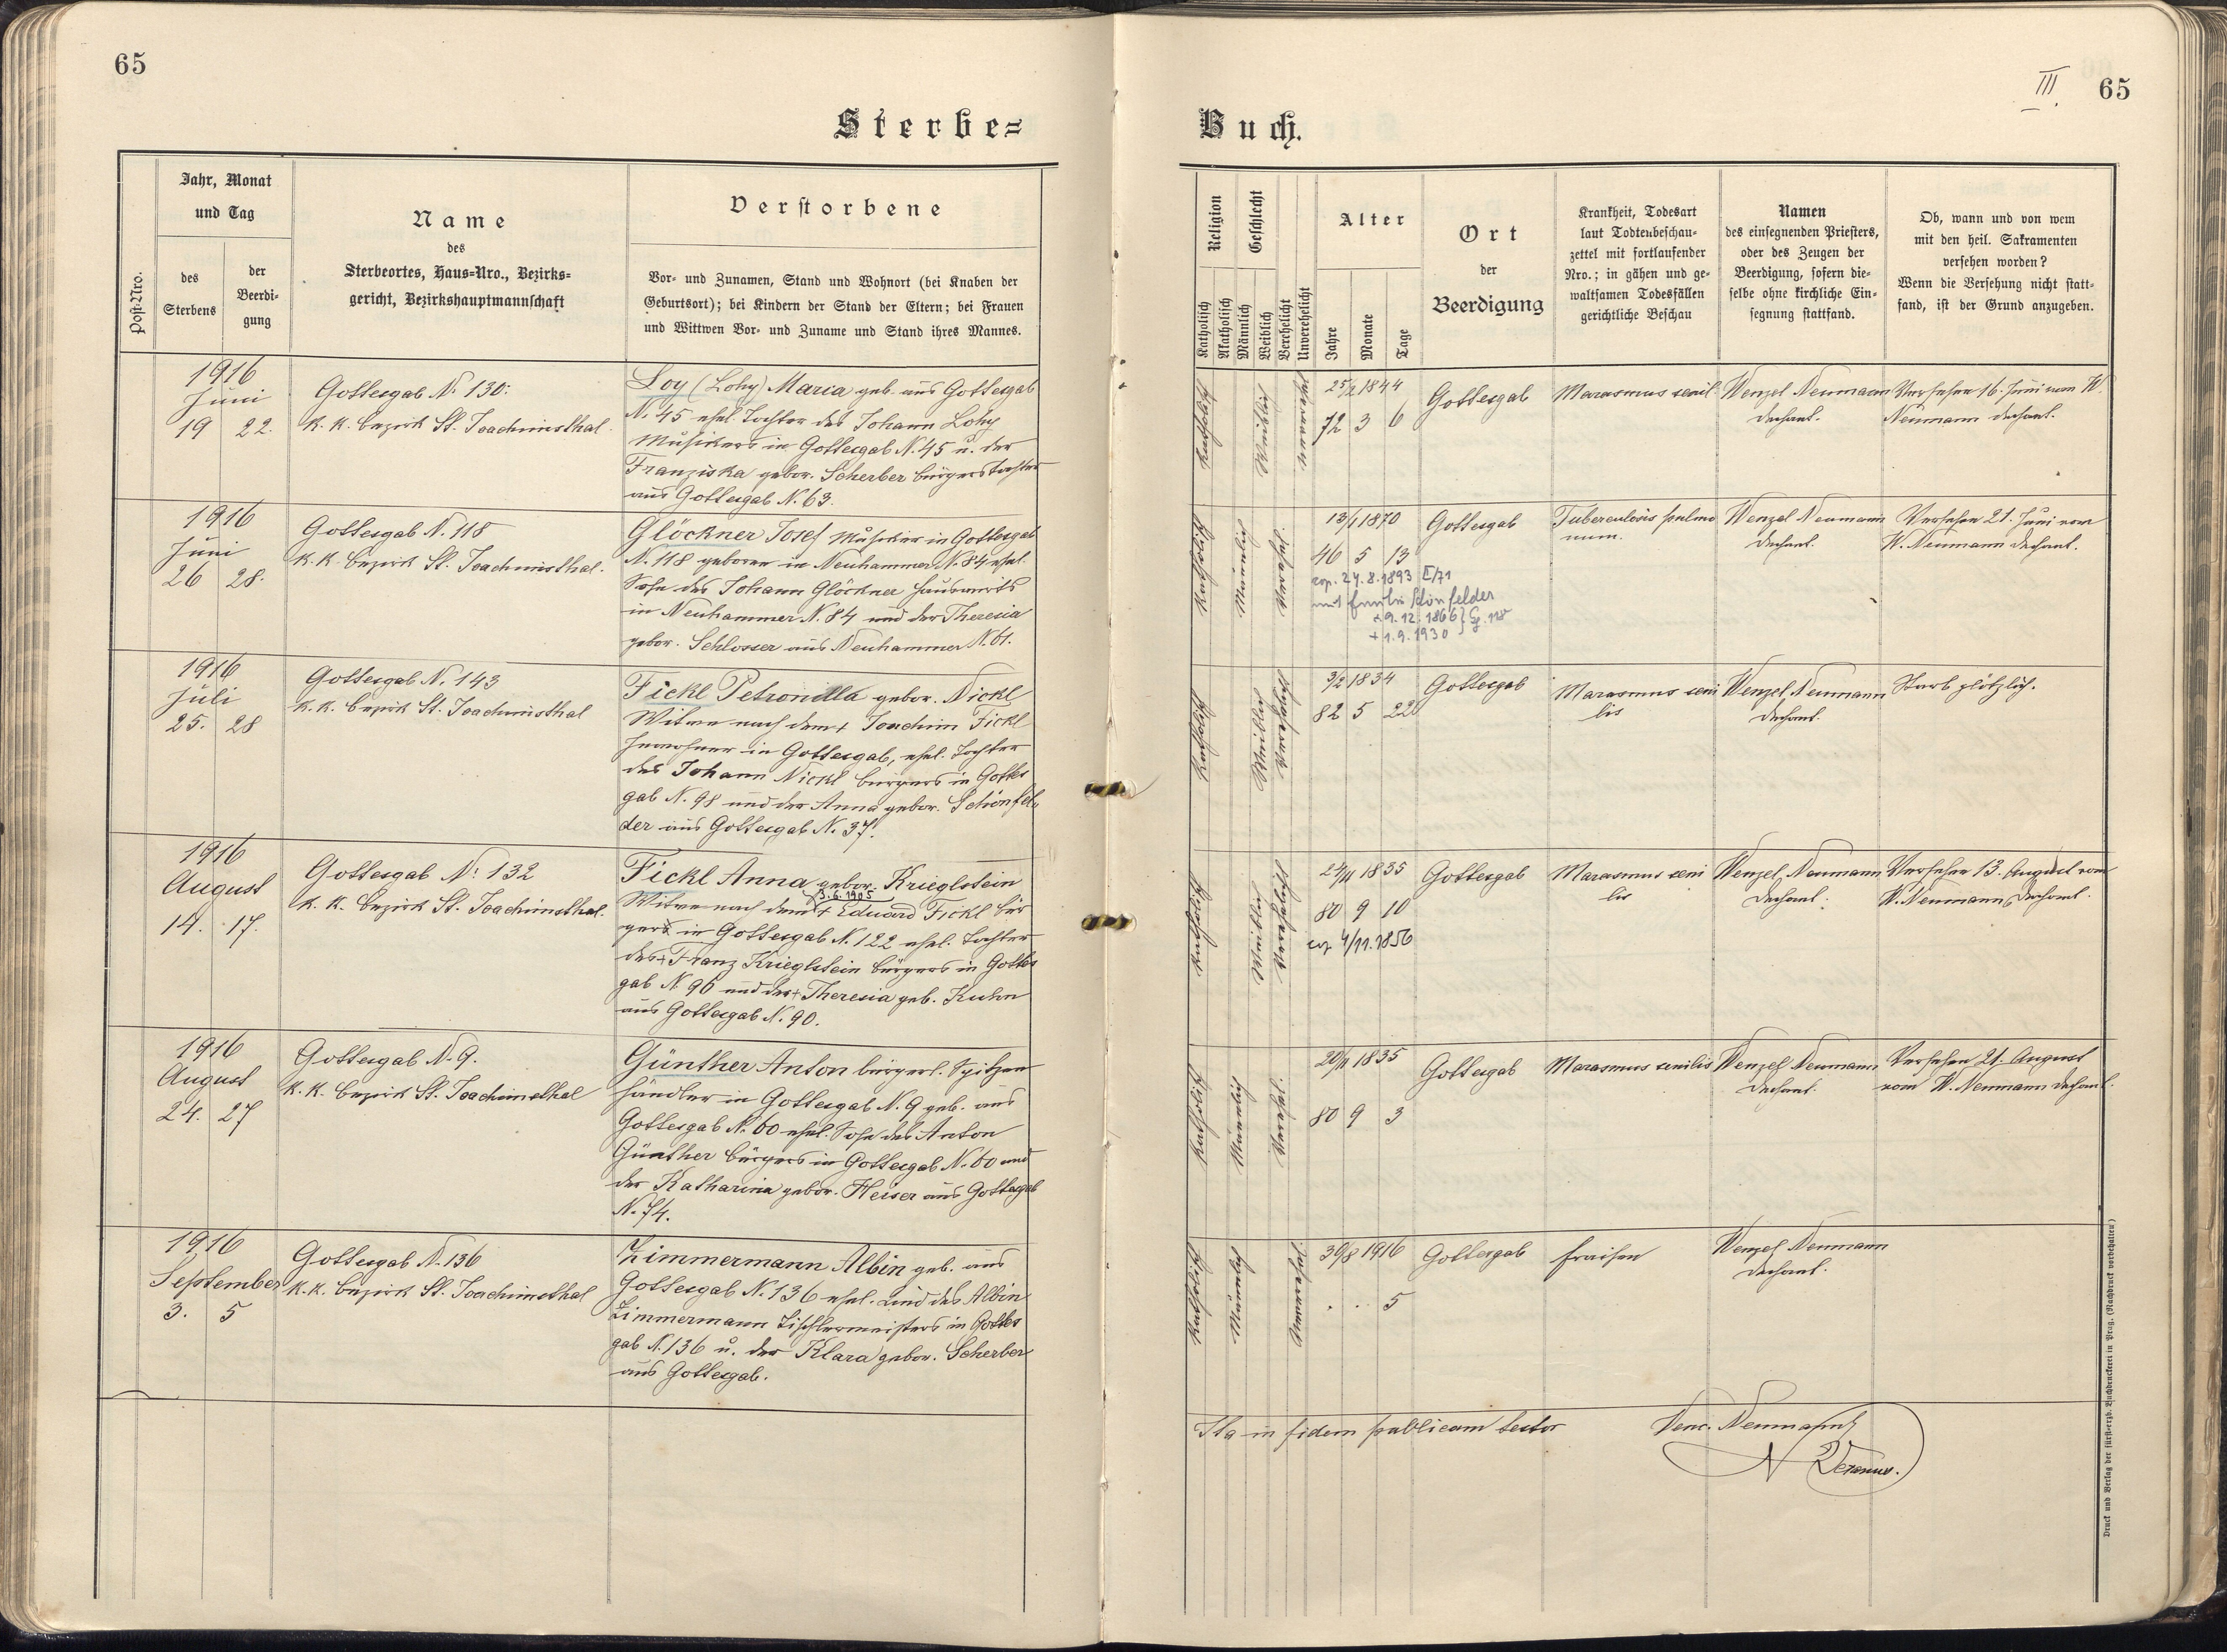 65
Sterbe=
Jahr, Monat
und Tag
Post-Nro.
des
Sterbens
der
Beerdi-
gung
Name
des
Sterbeortes, Haus-Nro., Bezirks-
gericht, Bezirkshauptmannschaft
Verstorbene
Vor- und Zunamen, Stand und Wohnort (bei Knaben der
Geburtsort); bei Kindern der Stand der Eltern; bei Frauen
und Wittwen Vor- und Zuname und Stand ihres Mannes.
1916
Juni
19 22.
Gottesgab N. 130:
K. K. Bezirk St. Joachimsthal.
Loy (Lohy) Maria geb. aus Gottesgab
N. 45 ehel. Tochter des Johann Lohy
Musikers in Gottesgab N. 45 u. der
Franziska gebor. Scherber Bürgerstochter
aus Gottesgab N. 63.
1916
Juni
26 28.
Gottesgab N. 118
K. K. Bezirk St. Joachimsthal.
Glöckner Josef Musiker in Gottesgab
N. 118 geboren in Neuhammer N. 84 ehel.
Sohn des Johann Glöckner Hauswirts
in Neuhammer N. 84 und der Theresia
gebor. Schlosser aus Neuhammer N. 61.
1916
Juli
25. 28
Gottesgab N. 143
K. K. Bezirk St. Joachimsthal
Fickl Petronilla gebor. Nickl
Witwe nach dem + Joachim Fickl
Inwohner in Gottesgab, ehel. Tochter
des Johann Nickl Bürgers in Gottes
gab N. 98 und der Anna gebor. Schönfel
der aus Gottesgab N. 37.
1916
August
14. 17.
Gottesgab N: 132
K. K. Bezirk St. Joachimsthal.
Fickl Anna gebor. Krieglstein
3.6.1905
Witwe nach dem + Eduard Fickl Bür
gers in Gottesgab N. 122 ehel. Tochter
des + Franz Krieglstein Bürgers in Gottes
gab N. 96 und der + Theresia geb. Kuhn
aus Gottesgab N. 90.
1916
August
24. 27
Gottesgab N. 9.
K. K. Bezirk St. Joachimsthal
Günther Anton bürgerl. Spitzen
händler in Gottesgab N. 9 geb. aus
Gottesgab N. 60 ehel. Sohn des Anton
Günther Bürgers in Gottesgab N. 60 und
der Katharina gebor. Heiser aus Gottesgab
N. 74.
1916
September
3. 5
Gottesgab N. 136
K. K. Bezirk St. Joachimsthal
Zimmermann Albin geb. aus
Gottesgab N. 136 ehel. Kind des Albin
Zimmermann Tischlermeisters in Gottes
gab N. 136 u. der Klara gebor. Scherber
aus Gottesgab.
III.
65
Buch.
Religion
Geschlecht
Katholisch
Akatholisch
Männlich
Weiblich
Verehelicht
Unverehelicht
Alter
Jahre
Monate
Tage
Ort
der
Beerdigung
Krankheit, Todesart
laut Todtenbeschau-
zettel mit fortlaufender
Nro.; in gähen und ge-
waltsamen Todesfällen
gerichtliche Beschau
Namen
des einsegnenden Priesters,
oder des Zeugen der
Beerdigung, sofern die-
selbe ohne kirchliche Ein-
segnung stattfand.
Ob, wann und von wem
mit den heil. Sakramenten
versehen worden?
Wenn die Versehung nicht statt-
fand, ist der Grund anzugeben.
Katholisch
Weiblich
Unverehel.
1844
72 3 6
Gottesgab
Marasmus senil.
Wenzel Neumann
Dechant.
Versehen 16. Juni vom W.
Neumann Dechant.
Katholisch
Männlich
Verehel.
13/1 1870
46 5 13
cop. 27.8.1893 II/71
mit Emilie Schönfelder
* 9.12.1866 } Gg. 118
+ 1.9.1930
Gottesgab
Tuberculosis pulmo
num.
Wenzel Neumann
Dechant.
Versehen 21. Juni vom
W. Neumann Dechant.
Katholisch
Weiblich
Verehelicht
3/2 1834
82 5 22
Gottesgab
Marasmus seni
lis
Wenzel Neumann
Dechant.
Starb plötzlich.
Katholisch
Weiblich
Verehelicht
24/11 1835
80 9 10
cop 4/11.1856
Gottesgab
Marasmus seni
lis
Wenzel Neumann
Dechant.
Versehen 13. August vom
W. Neumann Dechant.
Katholisch
Männlich
Verehel.
20/11 1835
80 9 3
Gottesgab
Marasmus senilis
Wenzel Neumann
Dechant.
Versehen 21. August
vom W. Neumann Dechant.
Katholisch
Männlich
Unverehel.
30/8 1916
. . 5
Gottesgab
Fraisen
Wenzel Neumann
Dechant.
Ita in fidem publicam testor
Venc. Neumann
Decanus.
Druck und Verlag der fürsterzb. Buchdruckerei in Prag. (Nachdruck vorbehalten.)